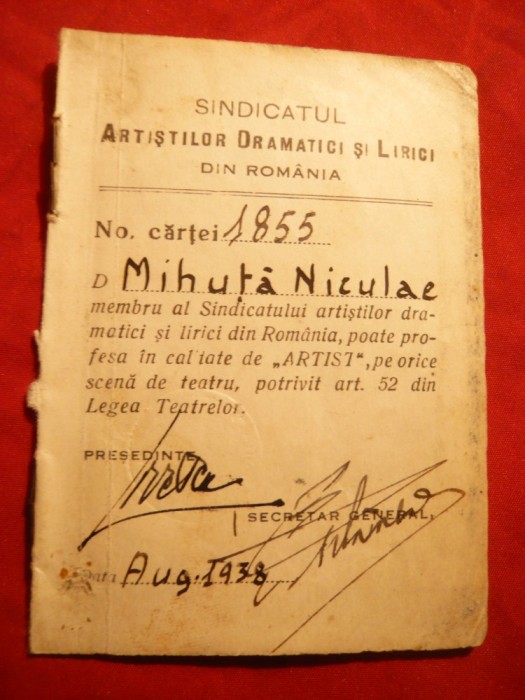 SINDICATUL
ARTIȘTILOR DRAMATICI ȘI LIRICI
DIN ROMÂNIA
No. cărței 1855
D Mihuță Niculae
membru al Sindicatului artiștilor dra-
matici și lirici din România, poate pro-
fesa în calitate de „ARTIST“, pe orice
scenă de teatru, potrivit art. 52 din
Legea Teatrelor.
PREȘEDINTE
SECRETAR GENERAL,
Data Aug. 1938